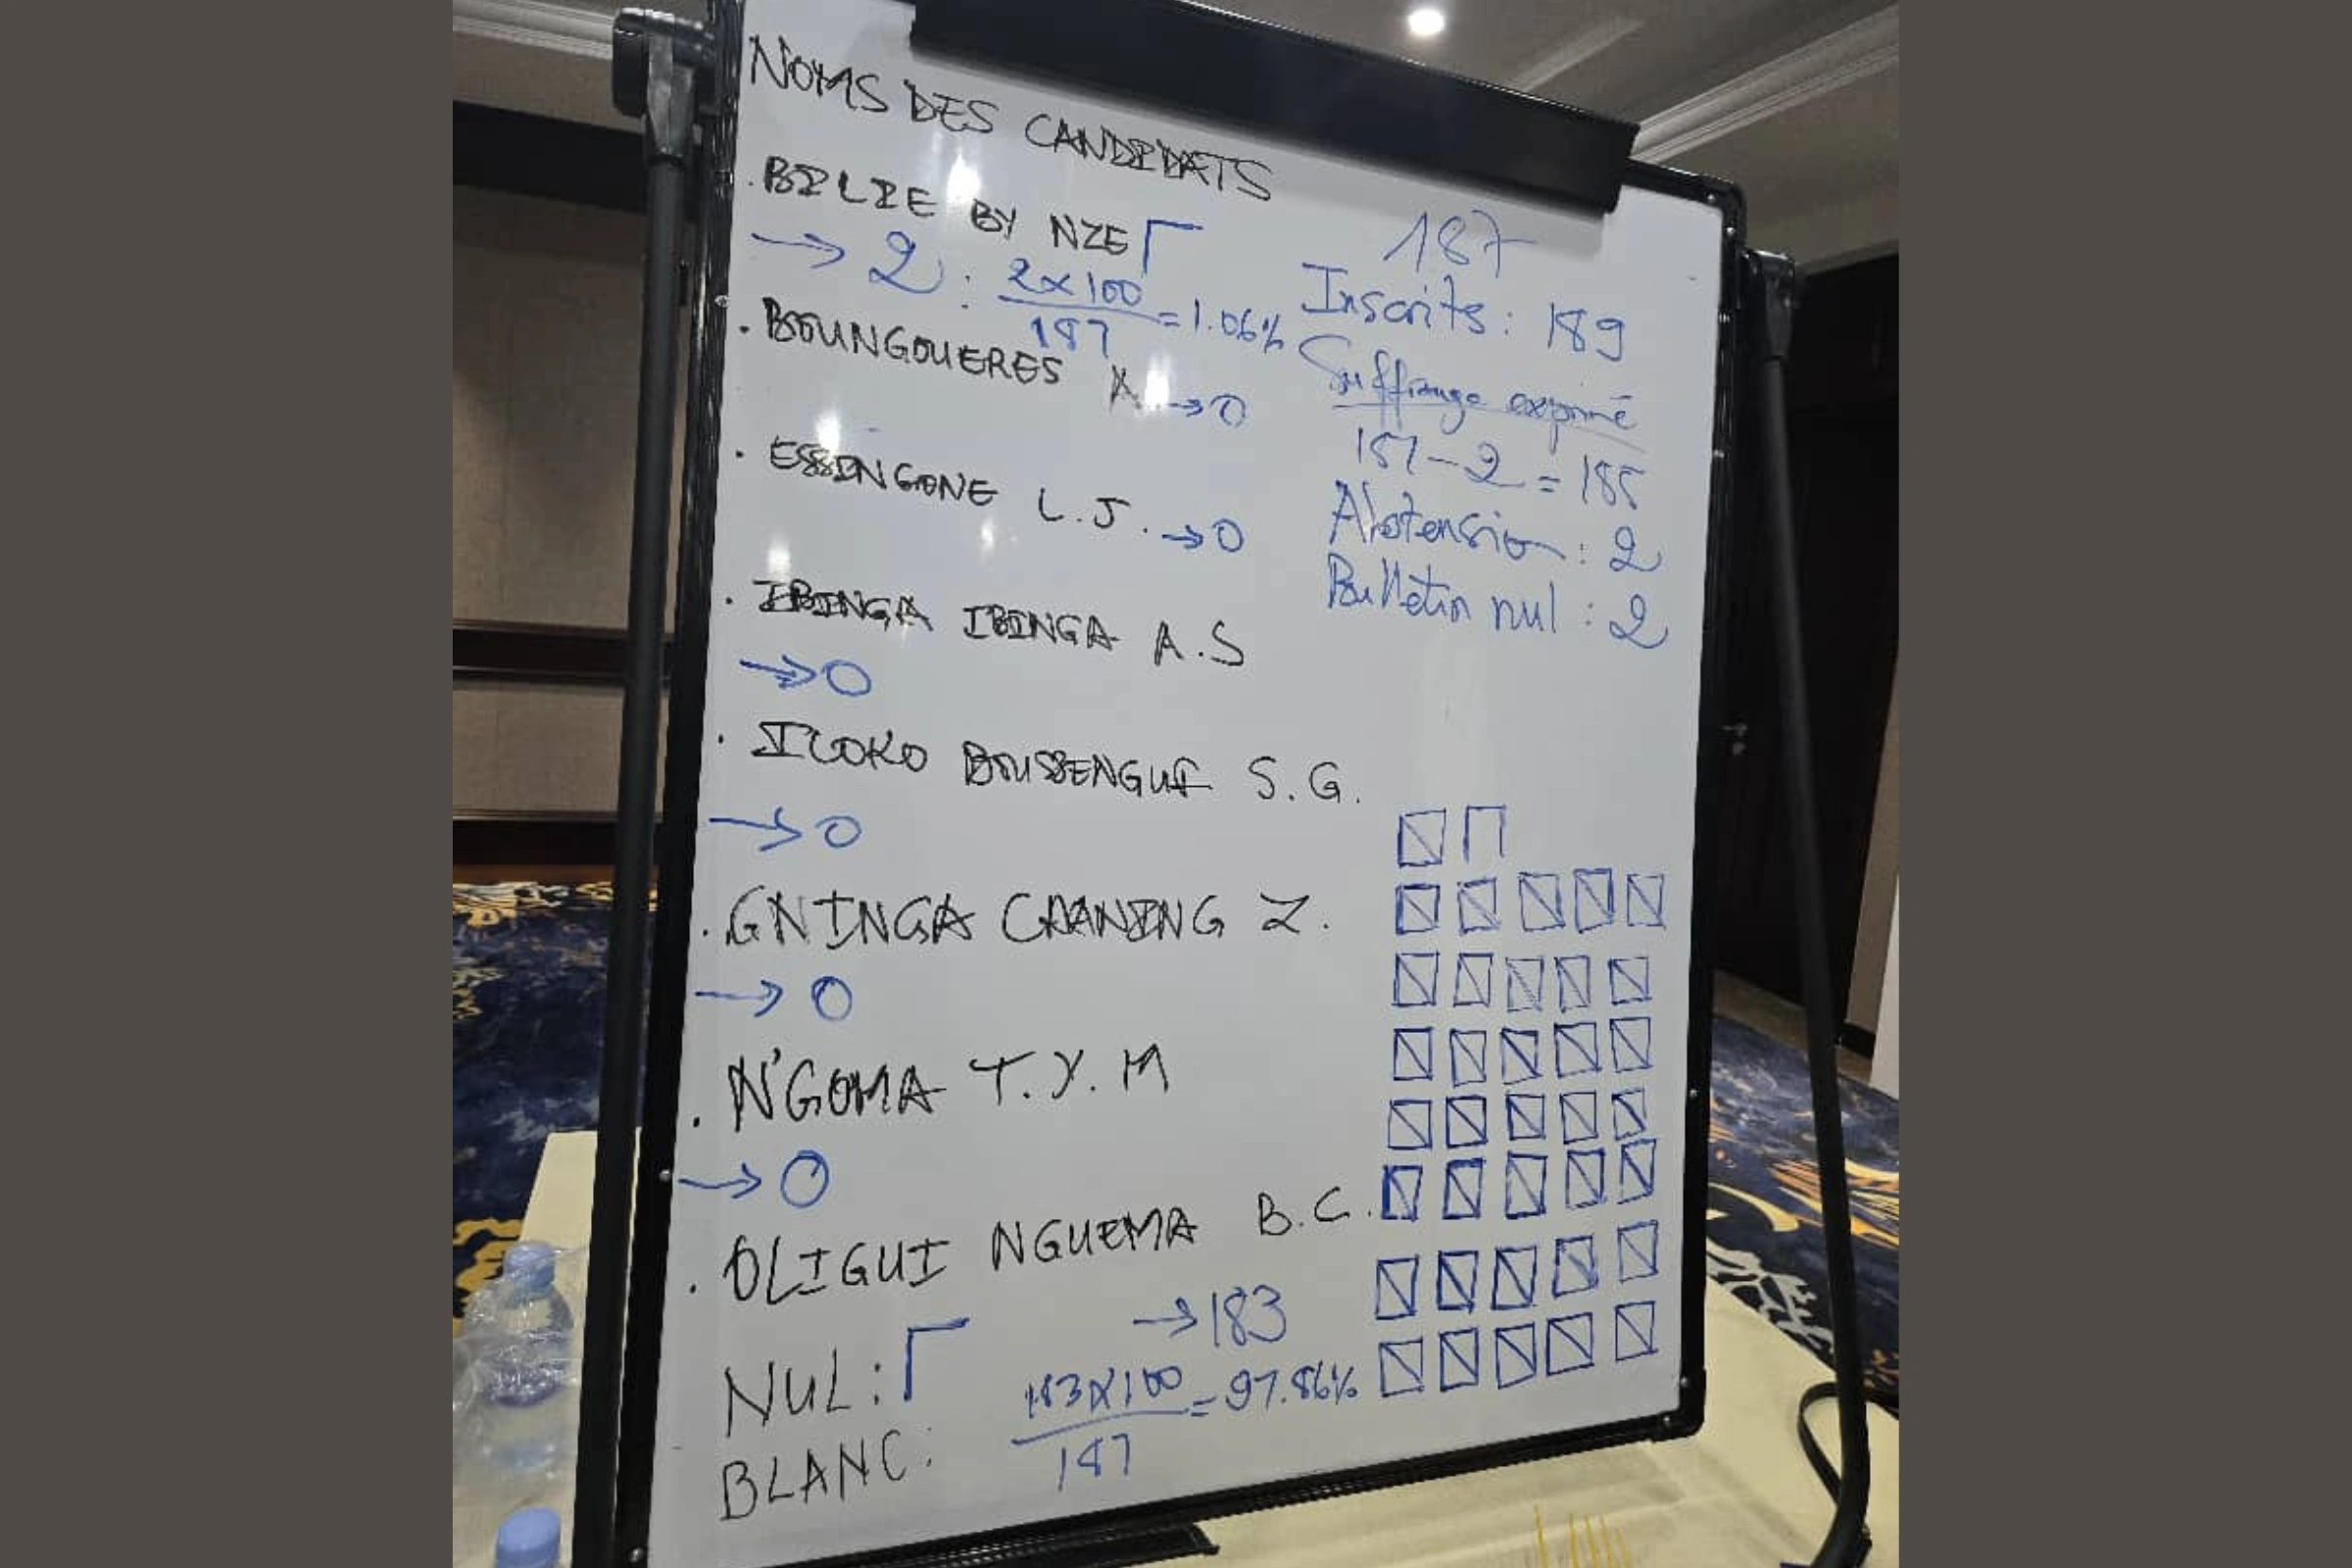 NOMS DES CANDIDATS
. BILIE BY NZE
→ 2 : 2x100 / 187 = 1.06%
. BOUNGOUERES A. → 0
. ESSINGONE L.J. → 0
. IBINGA IBINGA A.S
→ 0
. ILOKO BOUSSENGUI S.G.
→ 0
. GNINGA CHANING Z.
→ 0
. N'GOMA T.Y.M
→ 0
. OLIGUI NGUEMA B.C.
→ 183
183x100 / 187 = 97.86%
NUL :
BLANC :
187
Inscrits : 189
Suffrage exprimé
187 - 2 = 185
Abstension : 2
Bulletin nul : 2